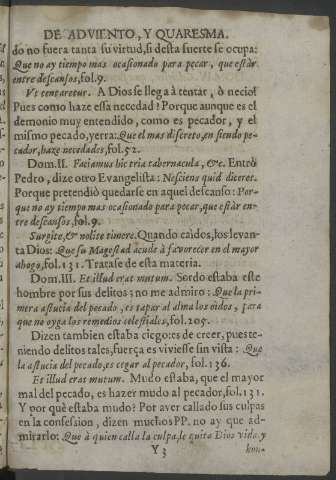 DE ADVIENTO, Y QUARESMA.
do no fuera tanta su virtud, si desta suerte se ocupa:
Que no ay tiempo mas ocasionado para pecar, que estàr
entre descansos, fol.9.
Vt tentaretur. A Dios se llega à tentar, ò necio!
Pues como haze essa necedad? Porque aunque es el
demonio muy entendido, como es pecador, y el
mismo pecado, yerra: Que el mas discreto, en siendo pe-
cador, haze necedades, fol.52.
Dom.II. Faciamus hic tria tabernacula, &c. Entrò
Pedro, dize otro Evangelista: Nesciens quid diceret.
Porque pretendiò quedarse en aquel descanso: Por-
que no ay tiempo mas ocasionado para pecar, que estàr en-
tre descansos, fol.9.
Surgite, & nolite timere. Quando caìdos, los levan-
ta Dios: Que su Magestad acude à favorecer en el mayor
ahogo, fol.131. Tratase de esta materia.
Dom.III. Et illud erat mutum. Sordo estaba este
hombre por sus delitos; no me admiro: Que la pri-
mera astucia del pecado, es tapar al alma los oìdos, para
que no oyga los remedios celestiales, fol.205.
Dizen tambien estaba ciego: es de creer, pues te-
niendo delitos tales, fuerça es viviesse sin vista: Que
la astucia del pecado, es cegar al pecador, fol.136.
Et illud erat mutum. Mudo estaba, que el mayor
mal del pecado, es hazer mudo al pecador, fol.131.
Y por què estaba mudo? Por aver callado sus culpas
en la confession, dizen muchos PP. no ay que ad-
mirarlo: Que à quien calla la culpa, le quita Dios vida, y
Y 3